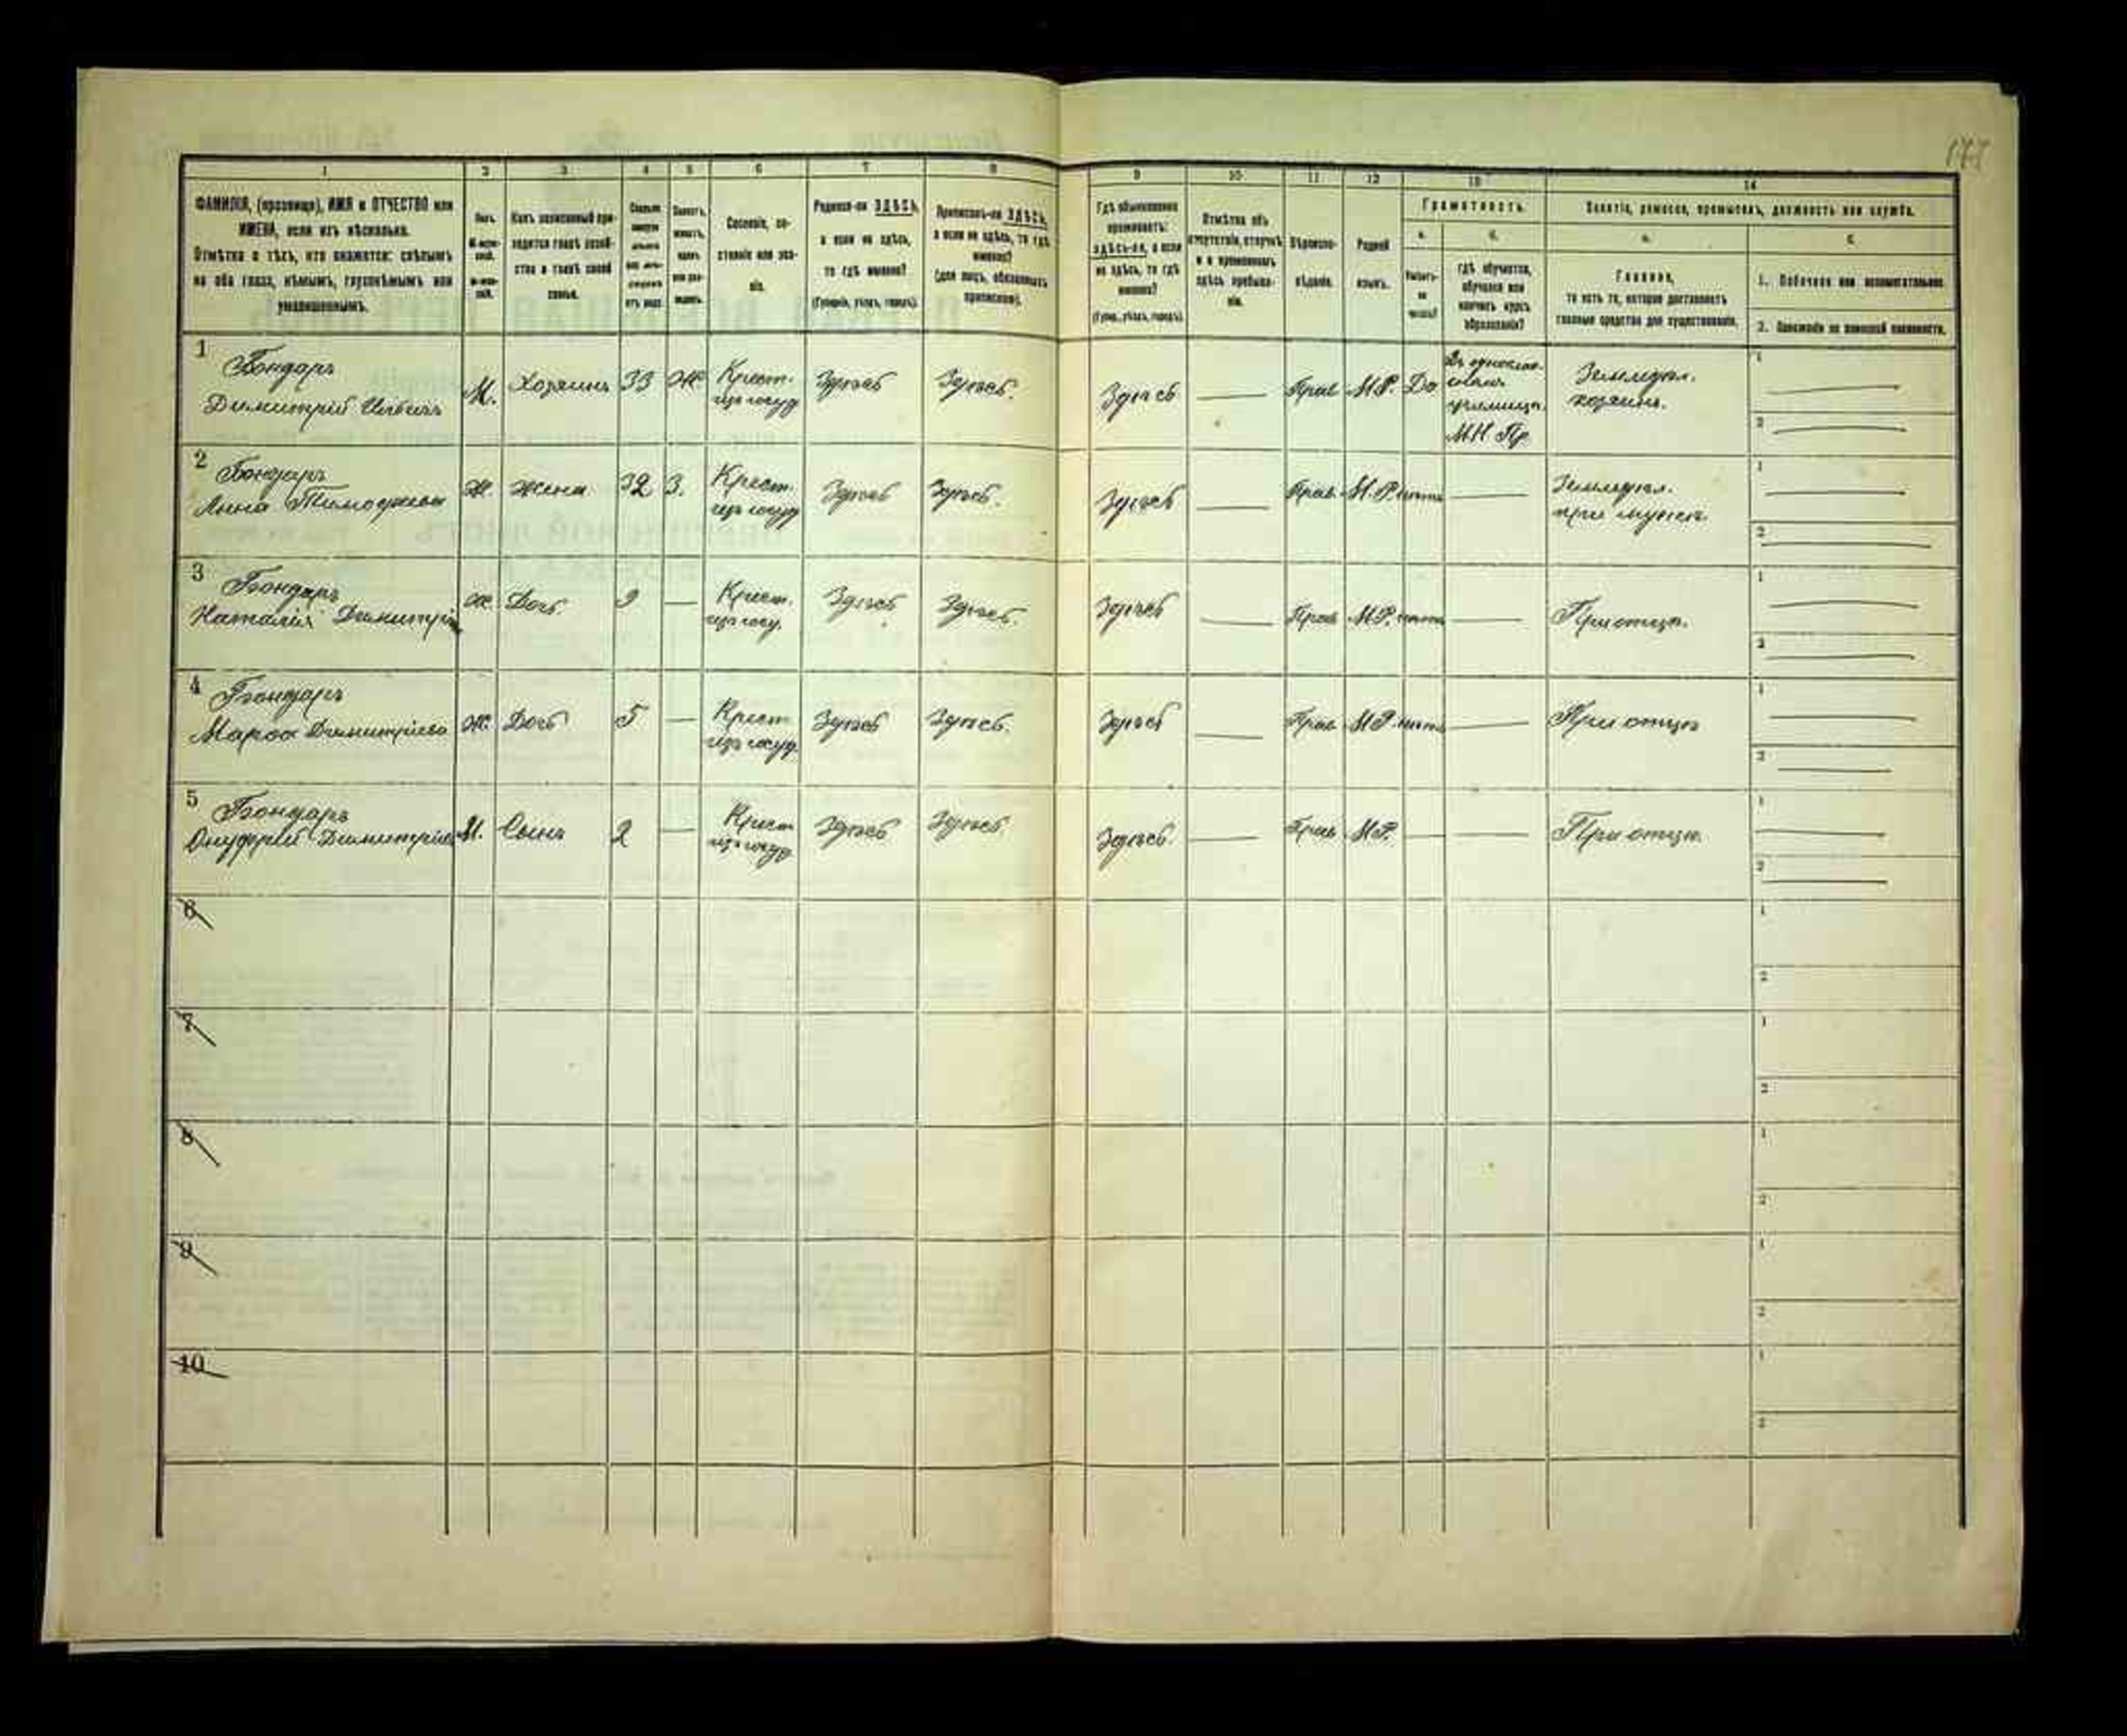 177
1 2 3 4 5 6 7 8 9 10 11 12 13 14
ФАМИЛІЯ, (прозвище), ИМЯ и ОТЧЕСТВО или
ИМЕНА, если ихъ нѣсколько.
Отмѣтка о тѣхъ, кто окажется: слѣпымъ
на оба глаза, нѣмымъ, глухонѣмымъ или
умалишеннымъ.
Полъ.
Какъ записанный при-
ходится главѣ хозяй-
ства и главѣ своей
семьи.
Сословіе, со-
стояніе или зва-
ніе.
Родился-ли ЗДѢСЬ,
а если не здѣсь,
то гдѣ именно?
(Губернія, уѣздъ, городъ).
Приписанъ-ли ЗДѢСЬ,
а если не здѣсь, то гдѣ
именно?
(для лицъ, обязанныхъ
припискою).
Гдѣ обыкновенно
проживаетъ:
здѣсь-ли, а если
не здѣсь, то гдѣ
именно?
(Губер., уѣздъ, городъ).
Отмѣтка объ
отсутствіи, отлучкѣ
и о временномъ
здѣсь пребыва-
ніи.
Вѣроиспо-
вѣданіе.
Родной
языкъ.
Грамотность.
а.
б.
Гдѣ обучается,
обучался или
кончилъ курсъ
образованія?
Занятіе, ремесло, промыселъ, должность или служба.
а.
Главное,
то есть то, которое доставляетъ
главныя средства для существованія.
б.
1. Побочное или вспомогательное.
2. Положеніе по воинской повинности.
1
Бондарь
Димитрій Ильичъ
М.
Хозяинъ
33
Ж
Крест.
изъ госуд
Здѣсь
Здѣсь.
Здѣсь
Прав
М.Р.
Да
училищѣ
М.Н. Пр.
Земледѣл.
хозяинъ.
1
2
2
Бондарь
Анна Тимофѣева
Ж.
Жена
32
З.
Крест.
изъ госуд
Здѣсь
Здѣсь.
Здѣсь
Прав.
М.Р.
нѣтъ
Земледѣл.
при мужѣ.
1
2
3
Бондарь
Наталія Димитрі
Ж.
Дочь
9
Крест.
изъ госу.
Здѣсь
Здѣсь.
Здѣсь
Прав
М.Р.
нѣтъ
При отцѣ.
1
2
4
Бондарь
Марфа Димитріева
Ж.
Дочь
5
Крест
изъ госуд.
Здѣсь
Здѣсь.
Здѣсь
Прав
М.Р.
нѣтъ
При отцѣ
1
2
5
Бондарь
Онуфрій Димитріев
М.
Сынъ
2
Крест
изъ госуд
Здѣсь
Здѣсь
Здѣсь.
Прав.
М.Р.
При отцѣ.
1
2
6
1
2
7
1
2
8
1
2
9
1
2
10
1
2